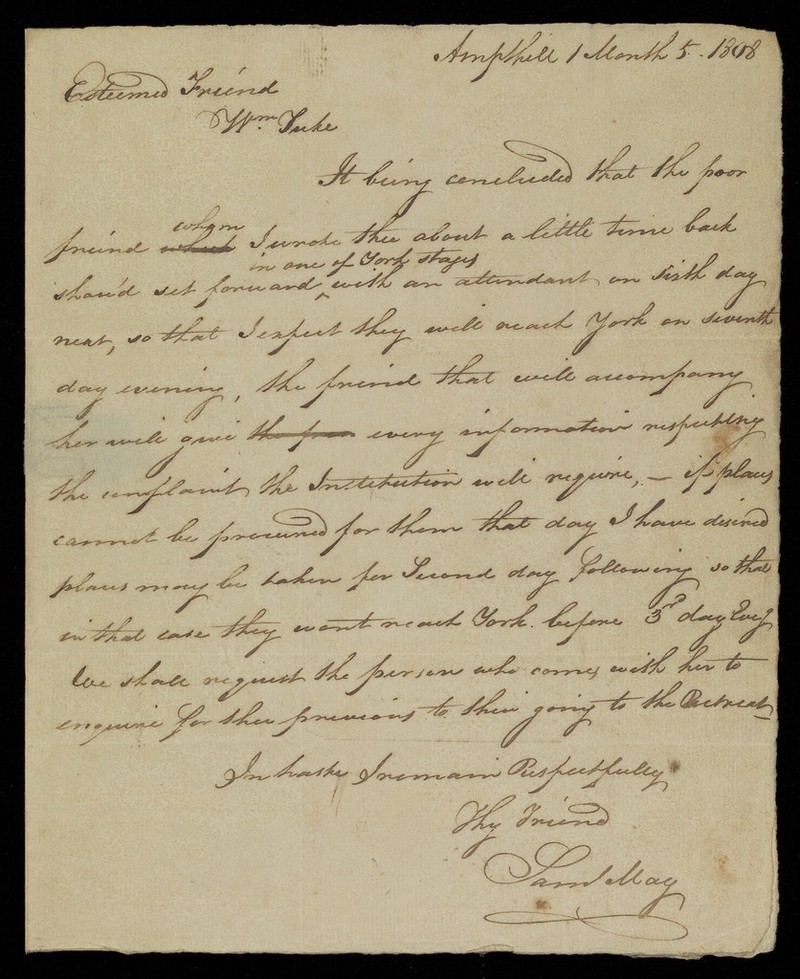 Ampthill 1 Month 5. 1808
Esteemed Friend
Wm. Tuke
It being concluded that the poor
whom
friend which I wrote thee about a little time back
in one of York stages
shou'd set forward ^ with an attendant on sixth day
next, so that I expect they will reach York on seventh
day evening, the friend that will accompany
her will give the free every information respecting
the complaint the Institution will require, — if places
cannot be procured for them that day I have desired
places may be taken for Second day following so that
in that case they wont reach York before 3rd day Eveg
We shall request the person who comes with her to
enquire for thee previous to their going to the Retreat —
In haste I remain Respectfully
Thy Friend
Saml May